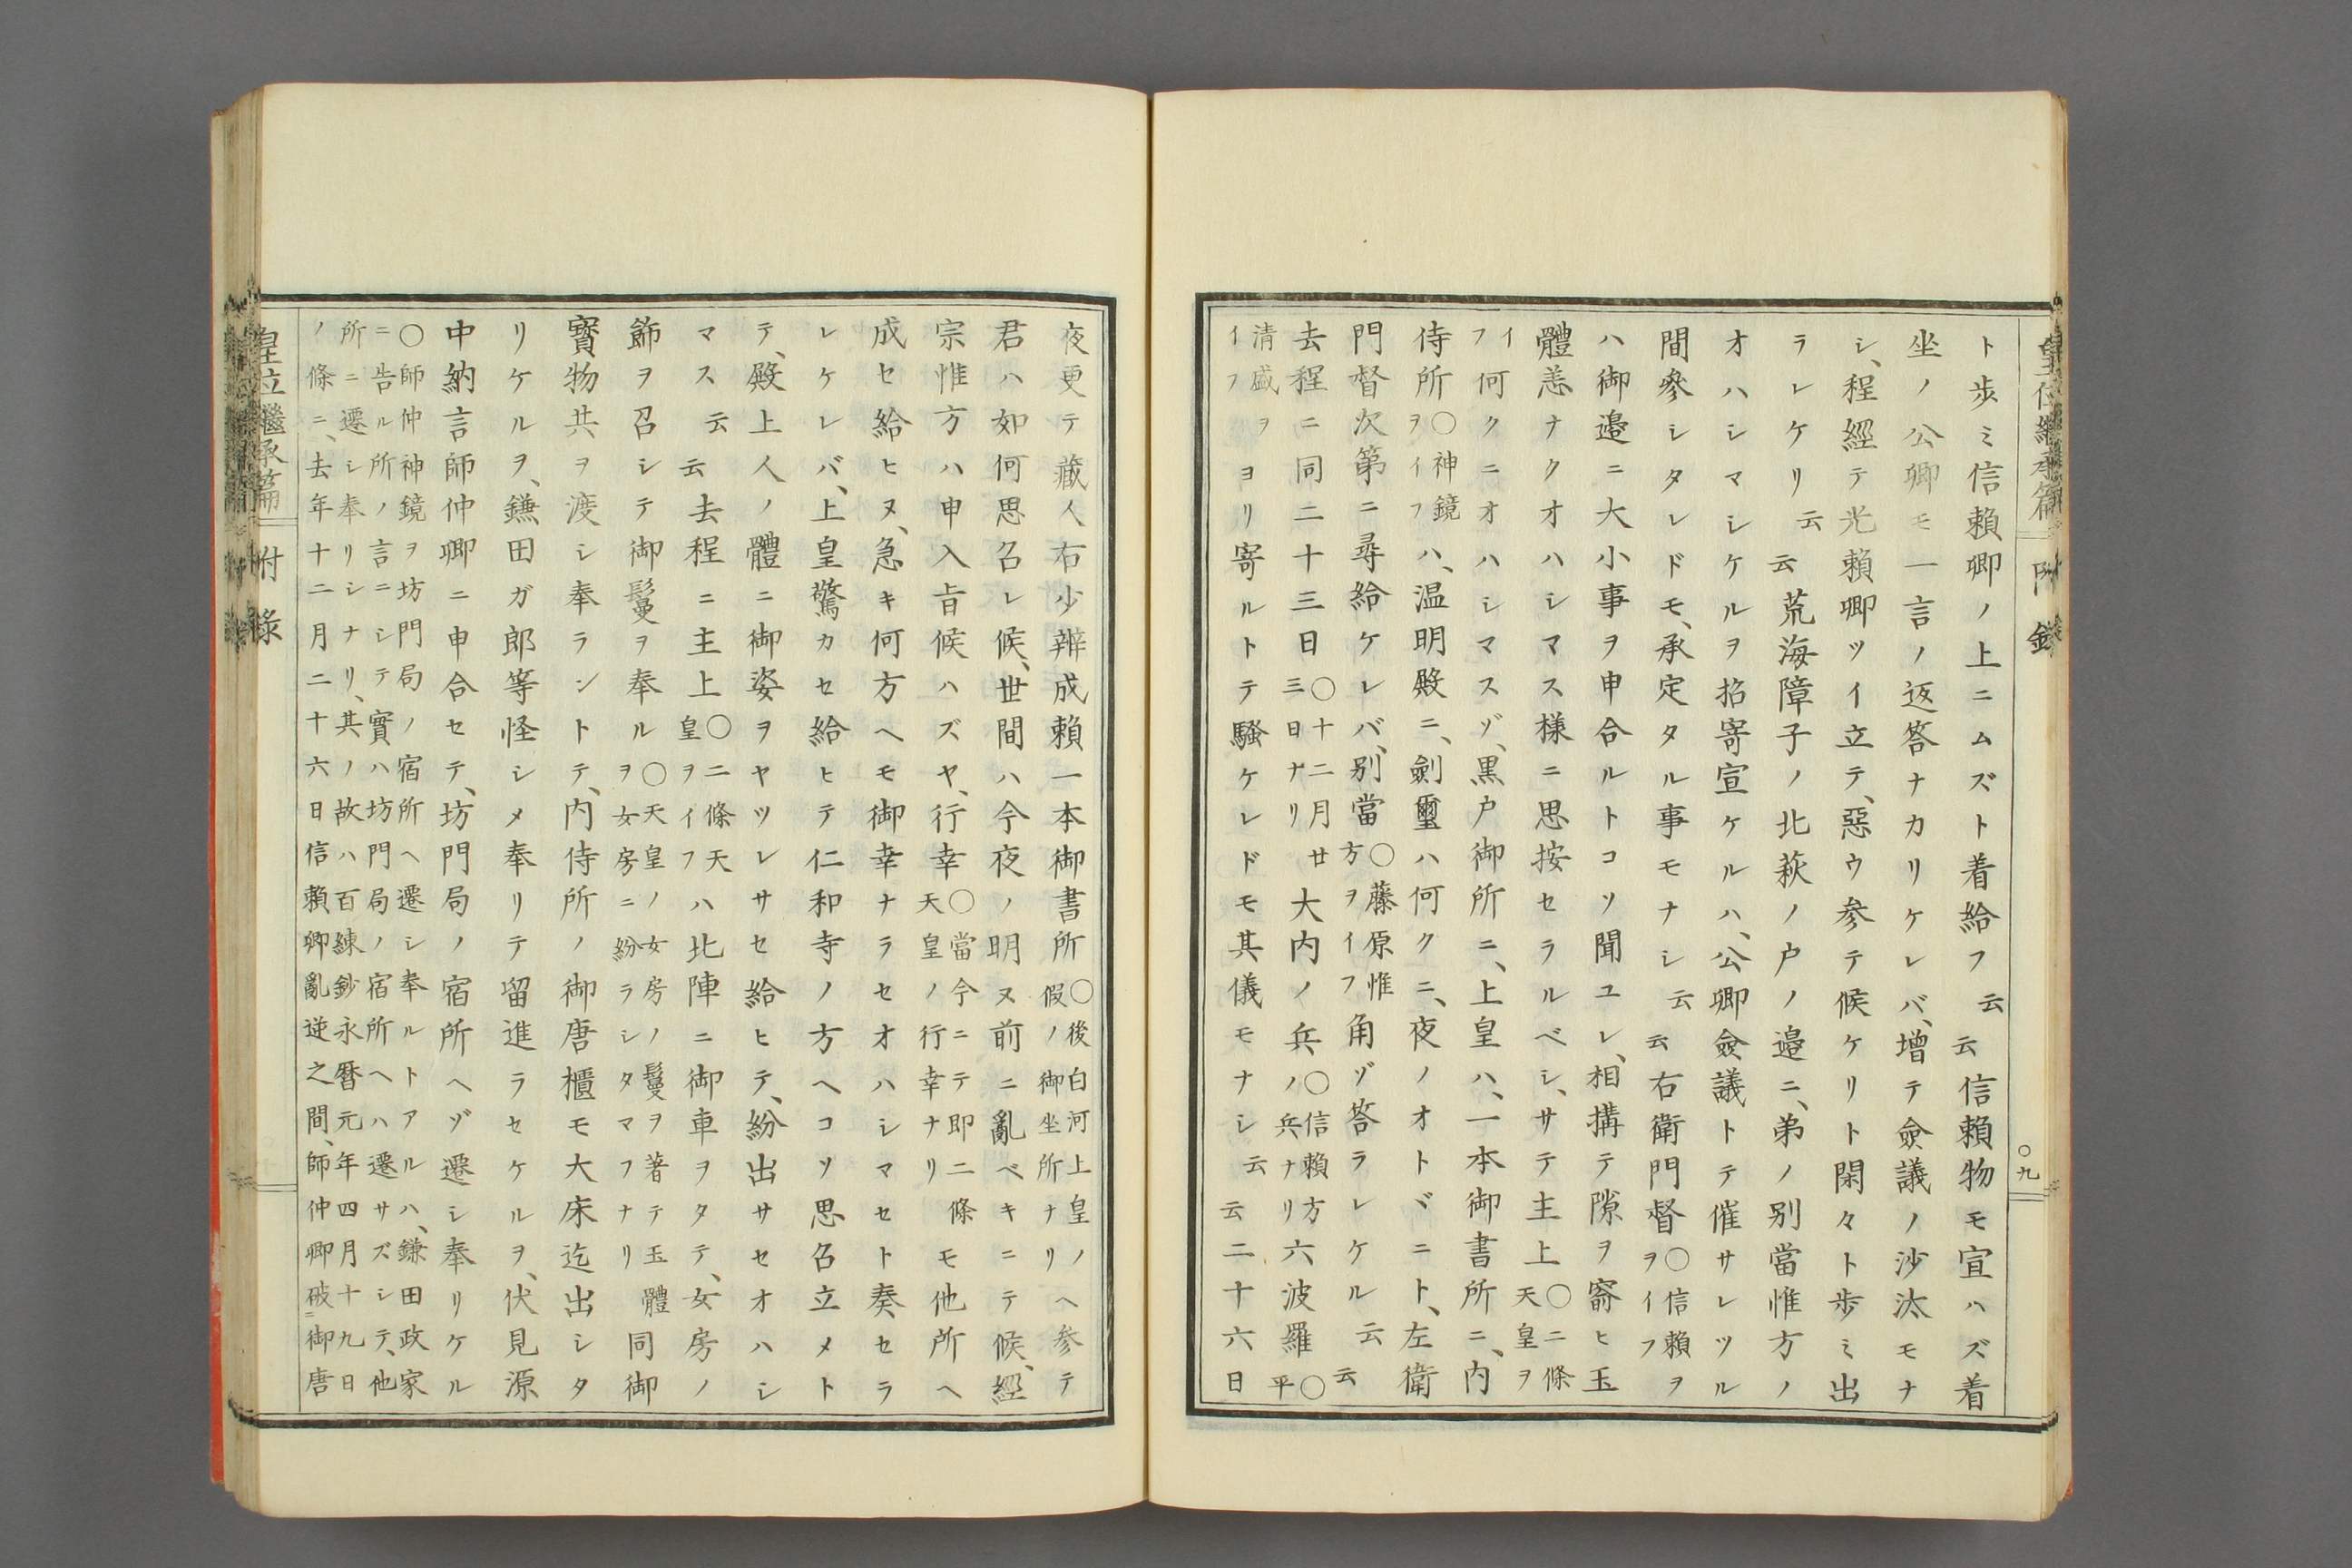 皇位繼承篇 附錄 〇九
ト步ミ信賴卿ノ上ニムズト着給フ云云信賴物モ宣ハズ着
坐ノ公卿モ一言ノ返答ナカリケレバ、增テ僉議ノ沙汰モナ
シ、程經テ光賴卿ツイ立テ、惡ウ參テ候ケリト閑々ト步ミ出
ラレケリ云云荒海障子ノ北萩ノ戶ノ邉ニ、弟ノ別當惟方ノ
オハシマシケルヲ招寄宣ケルハ、公卿僉議トテ催サレツル
間參シタレドモ、承定タル事モナシ云云右衛門督〇信賴ヲヲイフ
ハ御邉ニ大小事ヲ申合ルトコソ聞ユレ、相搆テ隙ヲ窬ヒ玉
體恙ナクオハシマス様ニ思按セラルベシ、サテ主上〇二條天皇ヲ
イフ何クニオハシマスゾ、黑戶御所ニ、上皇ハ、一本御書所ニ、内
侍所〇神鏡ヲイフハ、温明殿ニ、劍璽ハ何クニ、夜ノオトヾニト、左衛
門督次第ニ尋給ケレバ、別當〇藤原惟方ヲイフ角ゾ答ラレケル云云
去程ニ同二十三日〇十二月廿三日ナリ大内ノ兵〇信賴方ノ兵ナリ六波羅〇平
清盛ヲイフヨリ寄ルトテ騷ケレドモ其儀モナシ云云二十六日
夜更テ藏人右少辨成賴一本御書所〇後白河上皇ノ假ノ御坐所ナリヘ參テ
君ハ如何思召レ候、世間ハ今夜ノ明ヌ前ニ亂ベキニテ候、經
宗惟方ハ申入旨候ハズヤ、行幸〇當今ニテ即二條天皇ノ行幸ナリモ他所ヘ
成セ給ヒヌ、急キ何方ヘモ御幸ナラセオハシマセト奏セラ
レケレバ、上皇驚カセ給ヒテ仁和寺ノ方ヘコソ思召立メト
テ、殿上人ノ體ニ御姿ヲヤツレサセ給ヒテ、紛出サセオハシ
マス云云去程ニ主上〇二條天皇ヲイフハ北陣ニ御車ヲタテ、女房ノ
飾ヲ召シテ御鬘ヲ奉ル〇天皇ノ女房ノ鬘ヲ著テ玉體ヲ女房ニ紛ラシタマフナリ同御
寳物共ヲ渡シ奉ラントテ、内侍所ノ御唐櫃モ大床迄出シタ
リケルヲ、鎌田ガ郎等怪シメ奉リテ留進ラセケルヲ、伏見源
中納言師仲卿ニ申合セテ、坊門局ノ宿所ヘゾ遷シ奉リケル
〇師仲神鏡ヲ坊門局ノ宿所ヘ遷シ奉ルトアルハ、鎌田政家
ニ告ル所ノ言ニシテ實ハ坊門局ノ宿所ヘハ遷サズシテ、他
所ニ遷シ奉リシナリ、其ノ故ハ百練鈔永暦元年四月十九日
ノ條ニ、去年十二月二十六日信賴卿亂逆之間、師仲卿破二御唐
皇位繼承篇 附錄